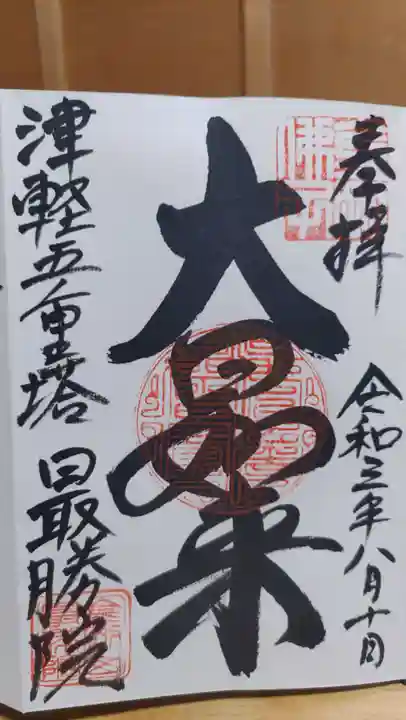 奉拝
令和三年八月十日
大日如来
津軽五重塔 最勝院